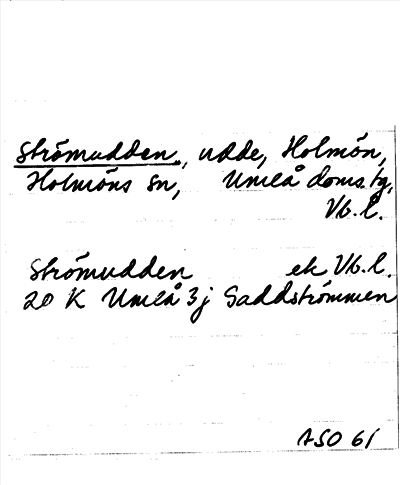 Strömudden, udde, Holmön,
Holmöns sn, Umeå doms. tg,
Vb. l.
Strömudden ek Vb. l.
20 K Umeå 3j Gaddströmmen
ASO 61